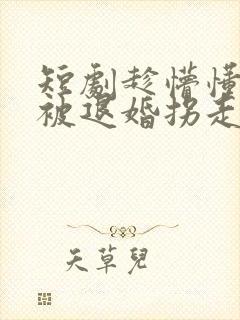 短劇趁懵懂
被退婚拐走
天草兒